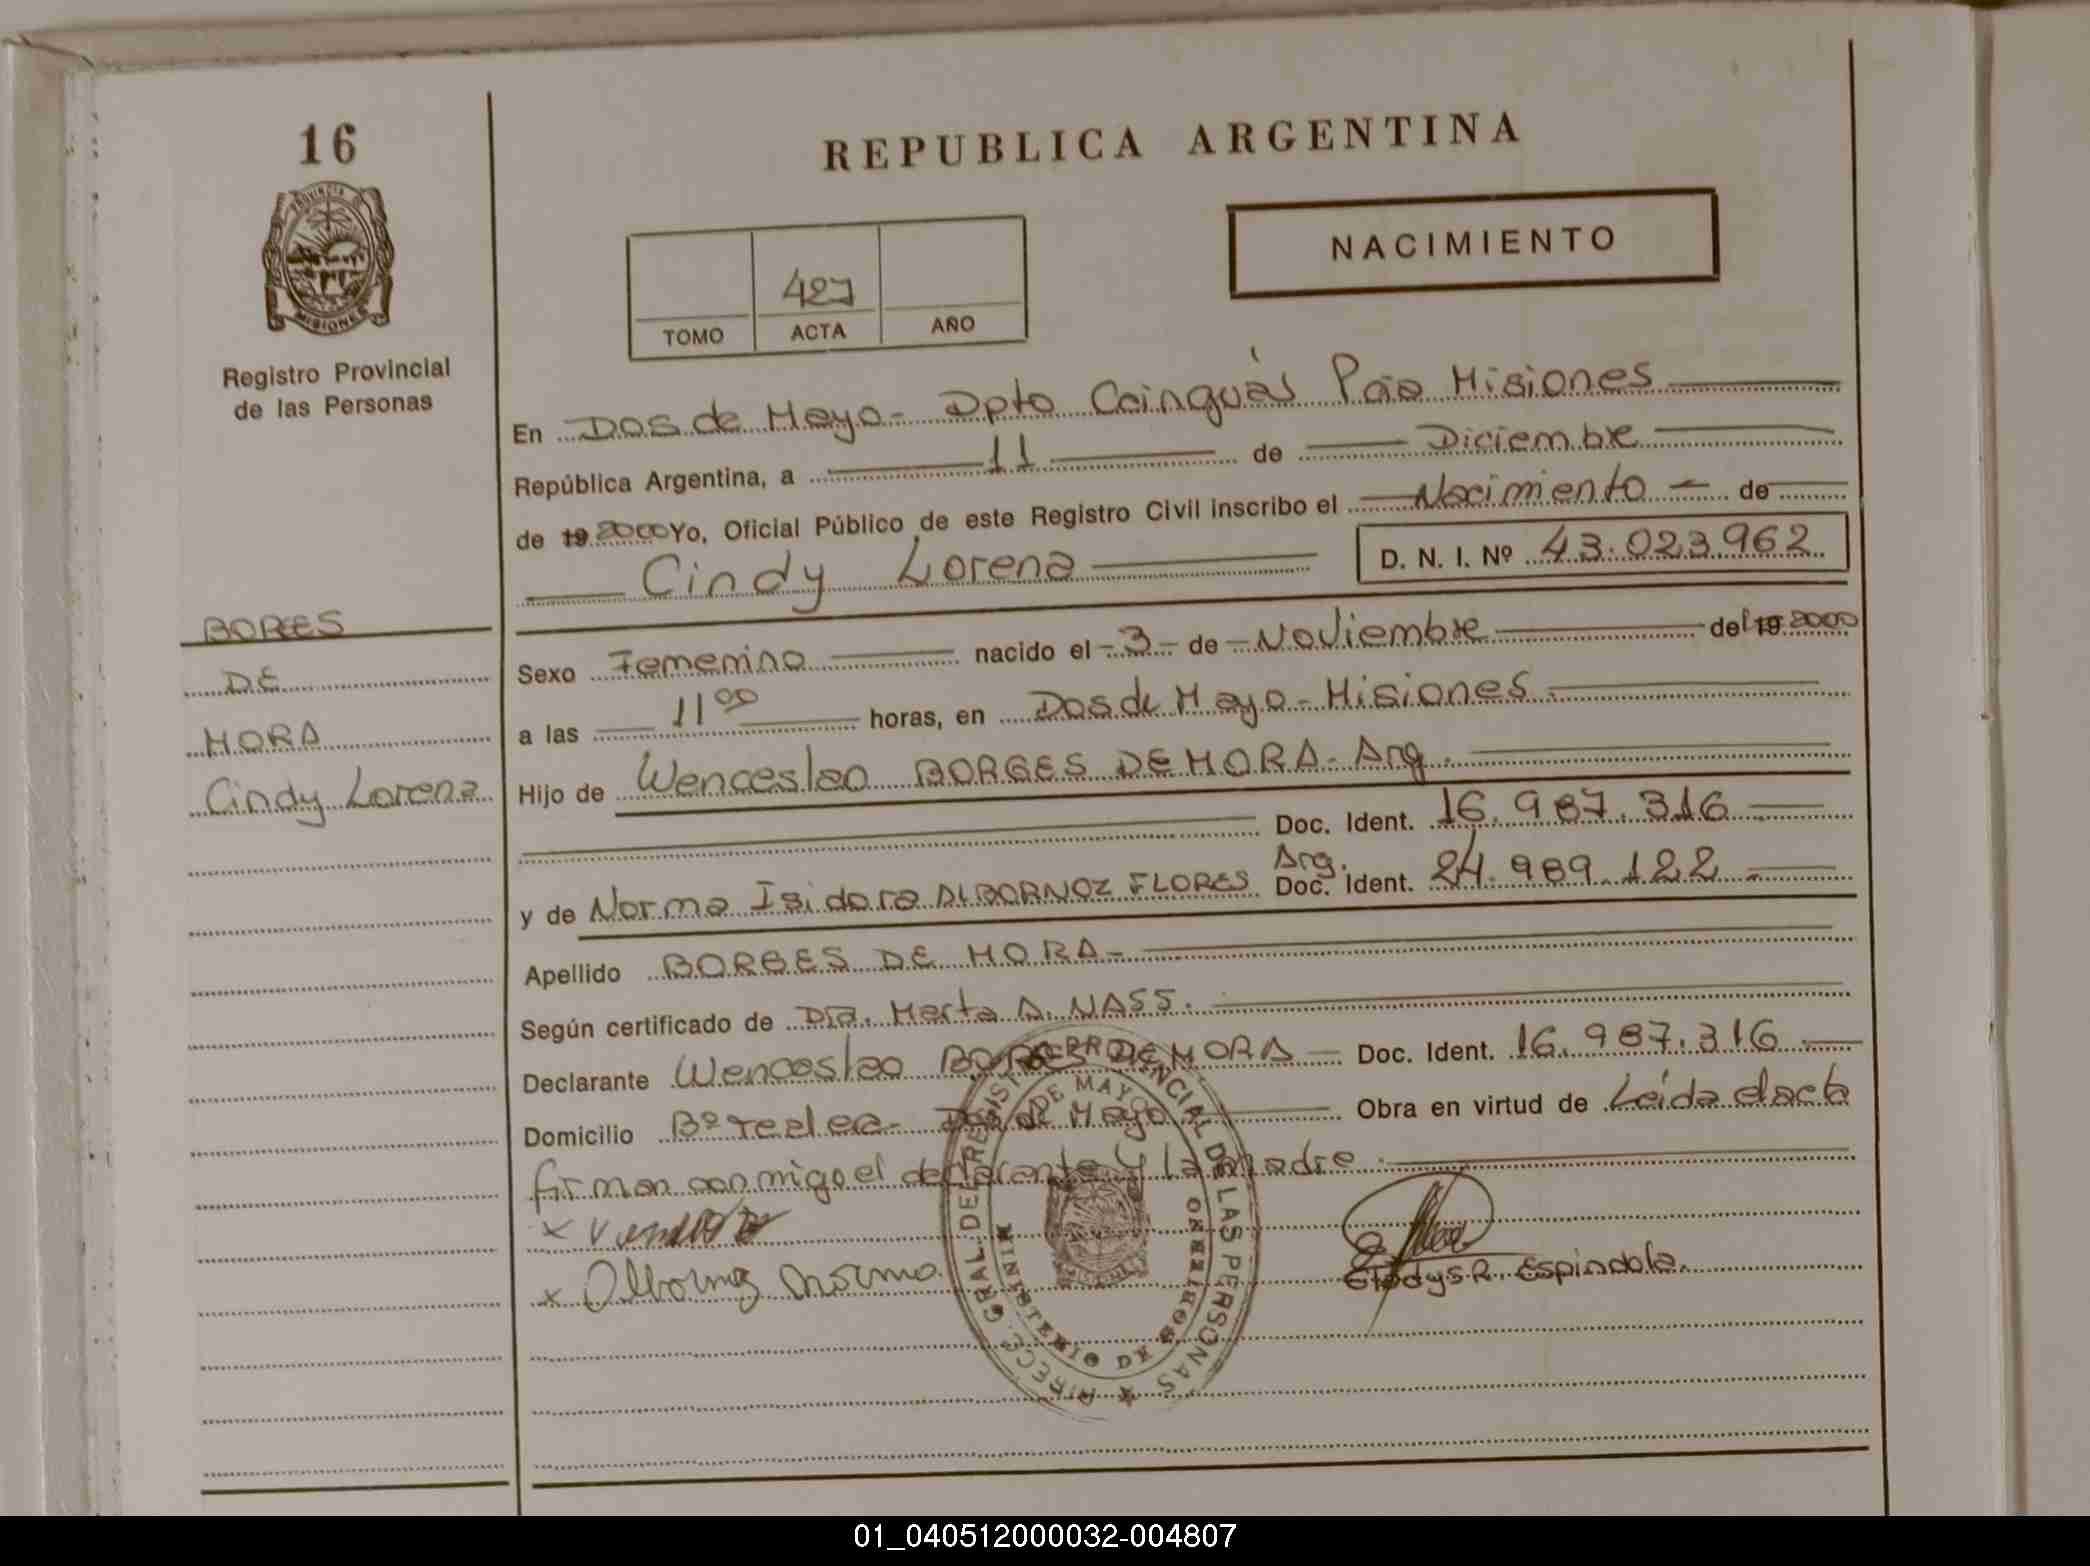 16
PROVINCIA
MISIONES
Registro Provincial
de las Personas
REPUBLICA ARGENTINA
NACIMIENTO
427
TOMO ACTA AÑO
En Dos de Mayo - Dpto Cainguás Pcia Misiones
República Argentina, a 11 de Diciembre
de 19 2000 Yo, Oficial Público de este Registro Civil inscribo el Nacimiento - de
Cindy Lorena D. N. I. Nº 43.023.962
BORGES
DE
MORA
Cindy Lorena
Sexo Femenino nacido el - 3 - de - Noviembre del 19 2000
a las 11 00 horas, en Dos de Mayo - Misiones -
Hijo de Wenceslao BORGES DE MORA - Arg.
Doc. Ident. 16.987.316
Arg.
y de Norma Isidora ALBORNOZ FLORES Doc. Ident. 24.989.122 -
Apellido BORGES DE MORA -
Según certificado de Dra. Marta A. NASS.
Declarante Wenceslao BORGES DE MORA Doc. Ident. 16.987.316
Domicilio Bº - Dos de Mayo Obra en virtud de Leída el acta
firman conmigo el declarante y la madre.
x
x Albornoz Norma
Gladys R. Espindola
DIRECC. GRAL. DE REGISTRO PROVINCIAL DE LAS PERSONAS
DOS DE MAYO
MINISTERIO DE GOBIERNO
01_040512000032-004807